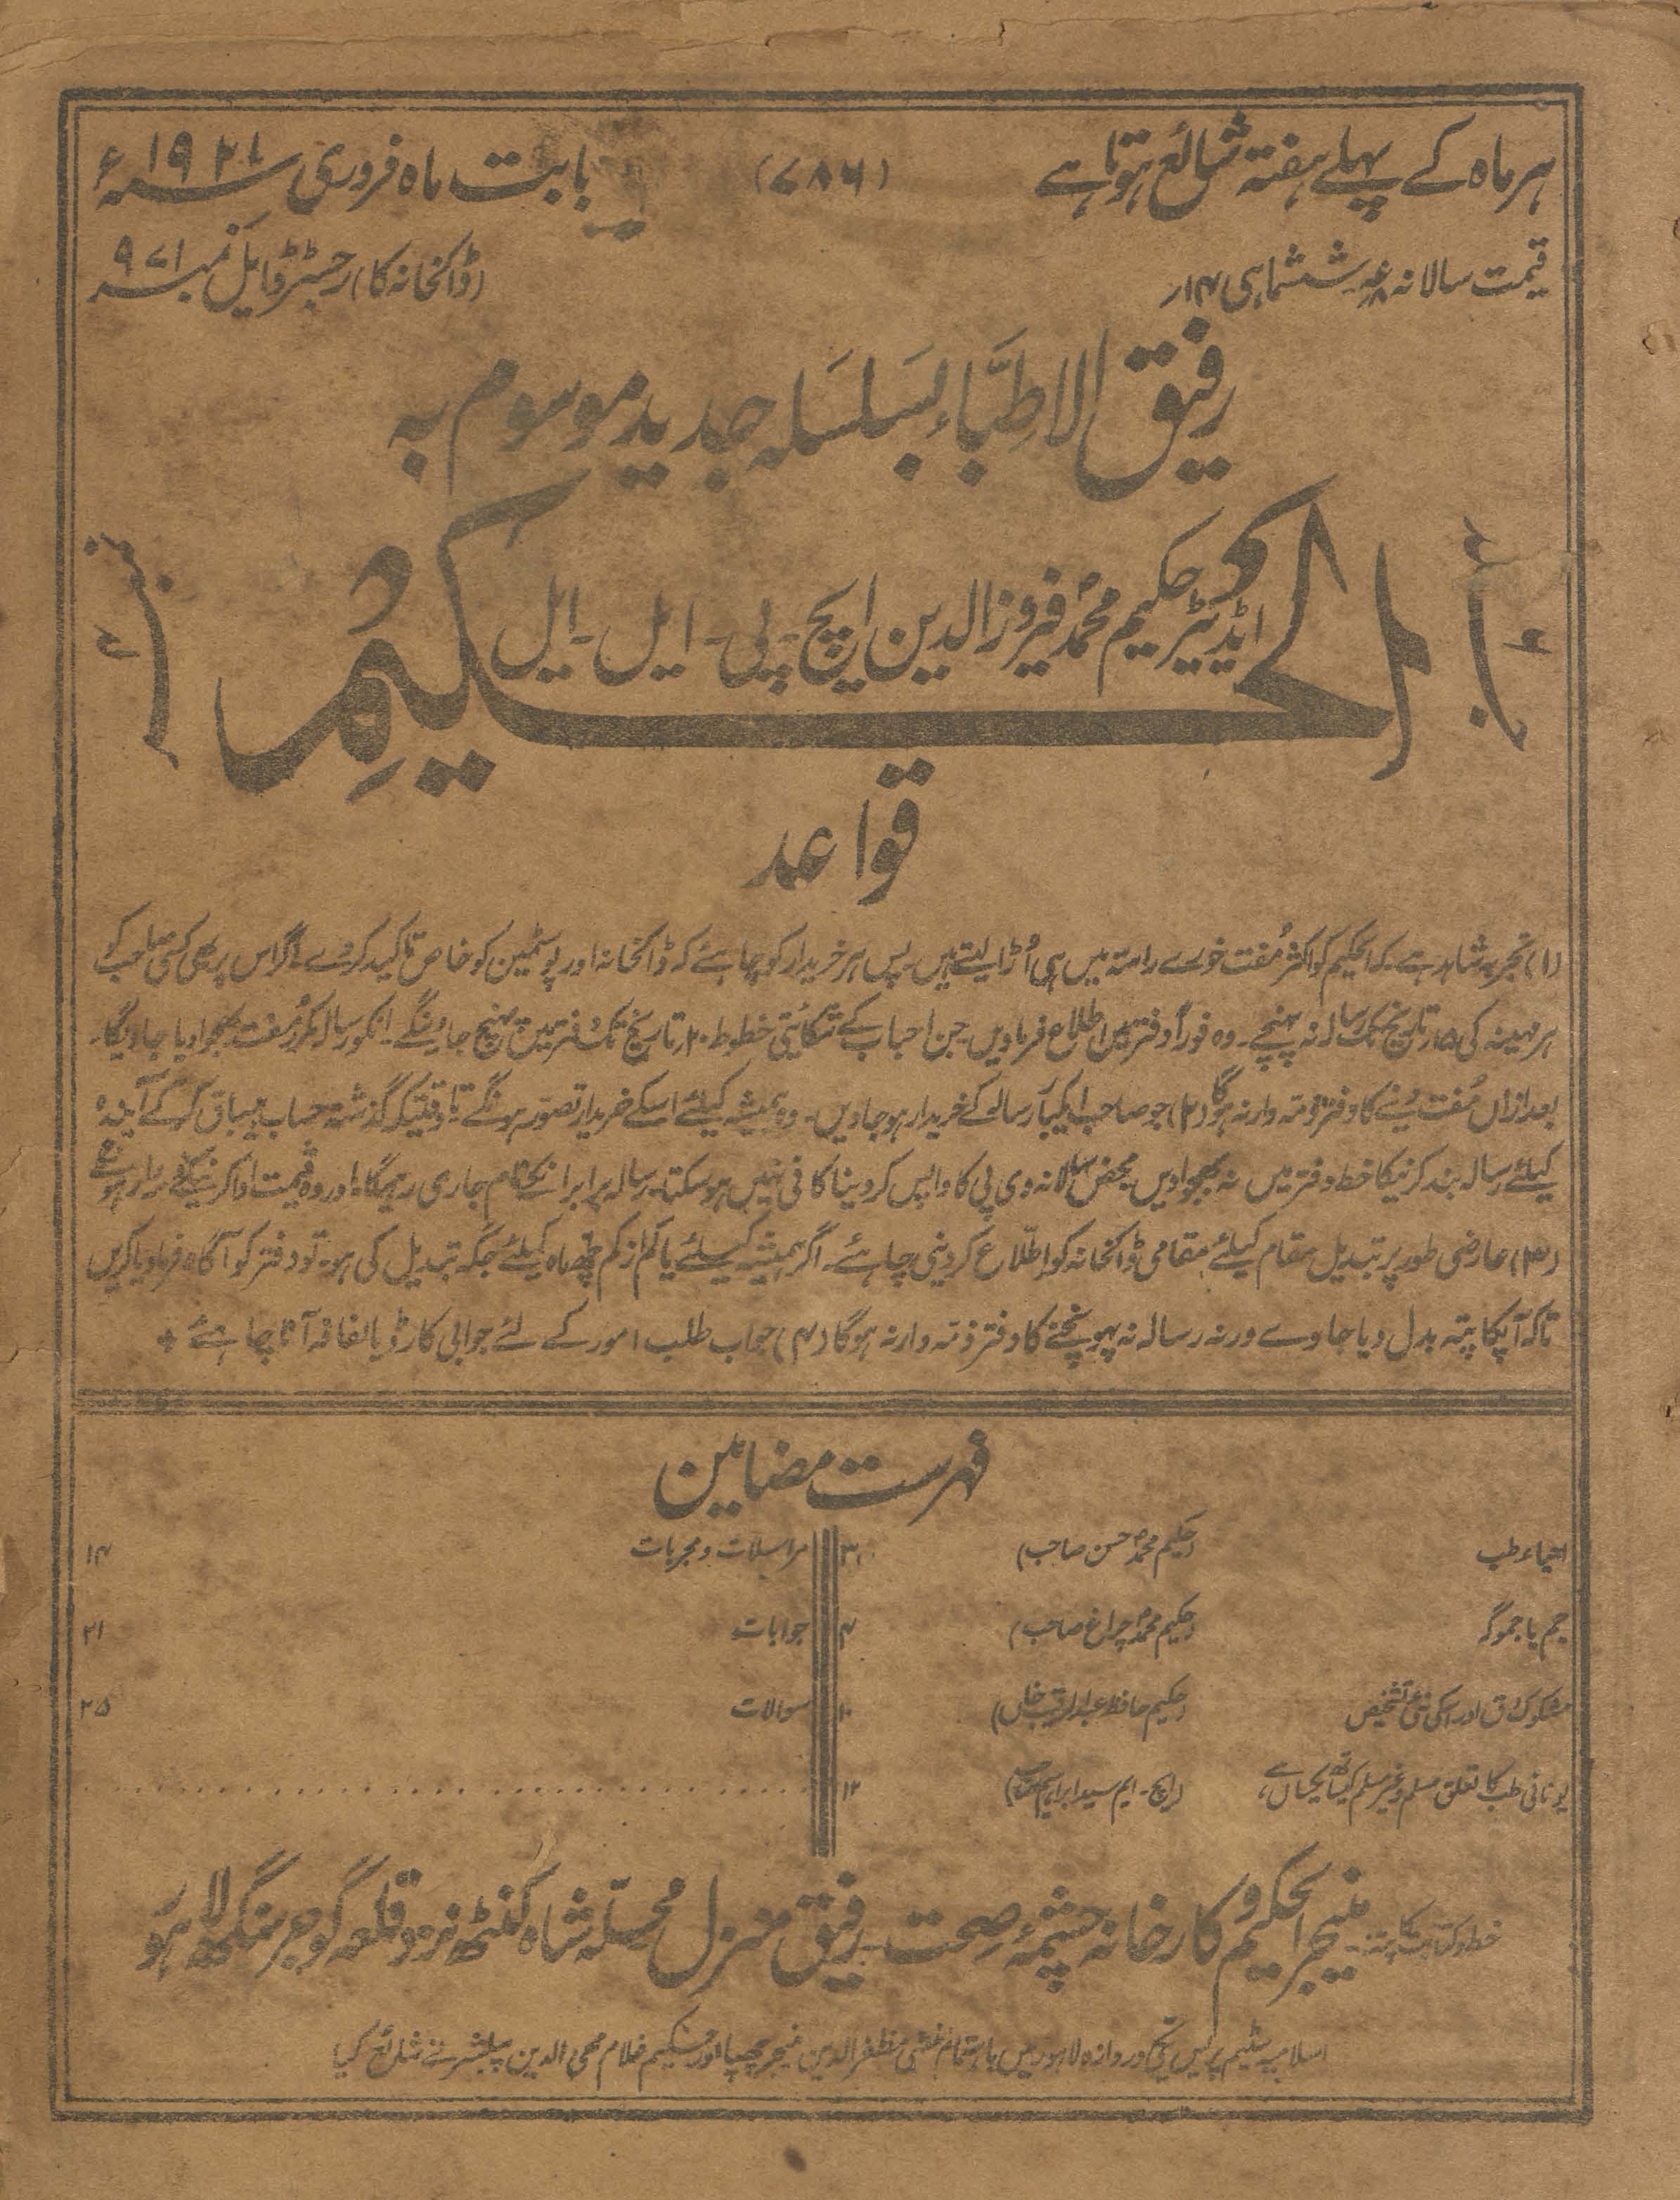 ہر ماہ کے پہلے ہفتہ شائع ہوتا ہے
(۷۸۶)
بابت ماہ فروری ۱۹۲۱ء
قیمت سالانہ ششماہی ۱۴؍
(ڈاکخانہ کا) رجسٹرڈ ایل نمبر ۹۷۱
رفیق الاطباء بسلسلہ جدید موسوم بہ
الحکیم
ایڈیٹر حکیم محمد فیروز الدین ایچ۔ پی۔ ایل۔ ایل
جلد
نمبر ۲
قواعد
(۱) تجربہ شاہد ہے۔ کہ الحکیم کو اکثر مُفت خورے راستہ میں ہی اُڑا لیتے ہیں۔ پس ہر خریدار کو چاہئے کہ ڈاکخانہ اور پوسٹمین کو خاص تاکید کر دے۔ اگر اس پر بھی کسی صاحب کو
ہر مہینہ کی ۱۵؍ تاریخ تک رسالہ نہ پہنچے۔ وہ فوراً دفتر میں اطلاع فرماویں۔ جن احباب کے شکایتی خطوط ۲۰؍ تاریخ تک دفتر میں پہنچ جاوینگے۔ انکو رسالہ مکرر مُفت بھجوا دیا جاویگا۔
بعد ازاں مُفت دینے کا دفتر ذمّہ وار نہ ہوگا (۲) جو صاحب ایکبار رسالہ کے خریدار ہو جاویں۔ وہ ہمیشہ کیلئے اسکے خریدار تصور ہونگے تا وقتیکہ گذشتہ حساب بیباق کر کے آیندہ
کیلئے رسالہ بند کرنیکا خط دفتر میں نہ بھجوا دیں۔ محض سالانہ وی پی کا واپس کر دینا کافی نہیں ہو سکتا۔ رسالہ برابر انکے نام جاری رہیگا۔ اور وہ قیمت ادا کرنیکے ذمہ وار ہونگے
(۳) عارضی طور پر تبدیل مقام کیلئے مقامی ڈاکخانہ کو اطلاع کر دینی چاہئے۔ اگر ہمیشہ کیلئے یا کم از کم چھ ماہ کیلئے جگہ تبدیل کی ہو۔ تو دفتر کو آگاہ فرما دیا کریں
تاکہ آپکا پتہ بدل دیا جاوے ورنہ رسالہ نہ پہونچنے کا دفتر ذمّہ وار نہ ہوگا (۴) جواب طلب امور کے لئے جوابی کارڈ یا لفافہ آنا چاہئے
فہرست مضامین
احیاء طب (حکیم محمد حسن صاحب) ۳
جم یا جموگہ (حکیم محمد چراغ صاحب) ۴
مشکوک دق اور اسکی نئی تشخیص (حکیم حافظ عبد الرب خاں) ۱۰
یونانی طب کا تعلق مسلم و غیر مسلم کیساتھ یکساں ہے (ایچ۔ ایم سید ابراہیم صاحب) ۱۲
مراسلات و مجربات ۱۴
جوابات ۲۱
سوالات ۲۵
خط و کتابت کا پتہ:۔ منیجر الحکیم و کارخانہ چشمۂ صحت۔ رفیق منزل محلّہ شاہ کنٹھ نزد قلعہ گوجر سنگھ لاہور
اسلامیہ سٹیم پریس یکی دروازہ لاہور میں باہتمام منشی مظفر الدین منیجر چھپا اور حکیم غلام محی الدین پبلشر نے شائع کیا